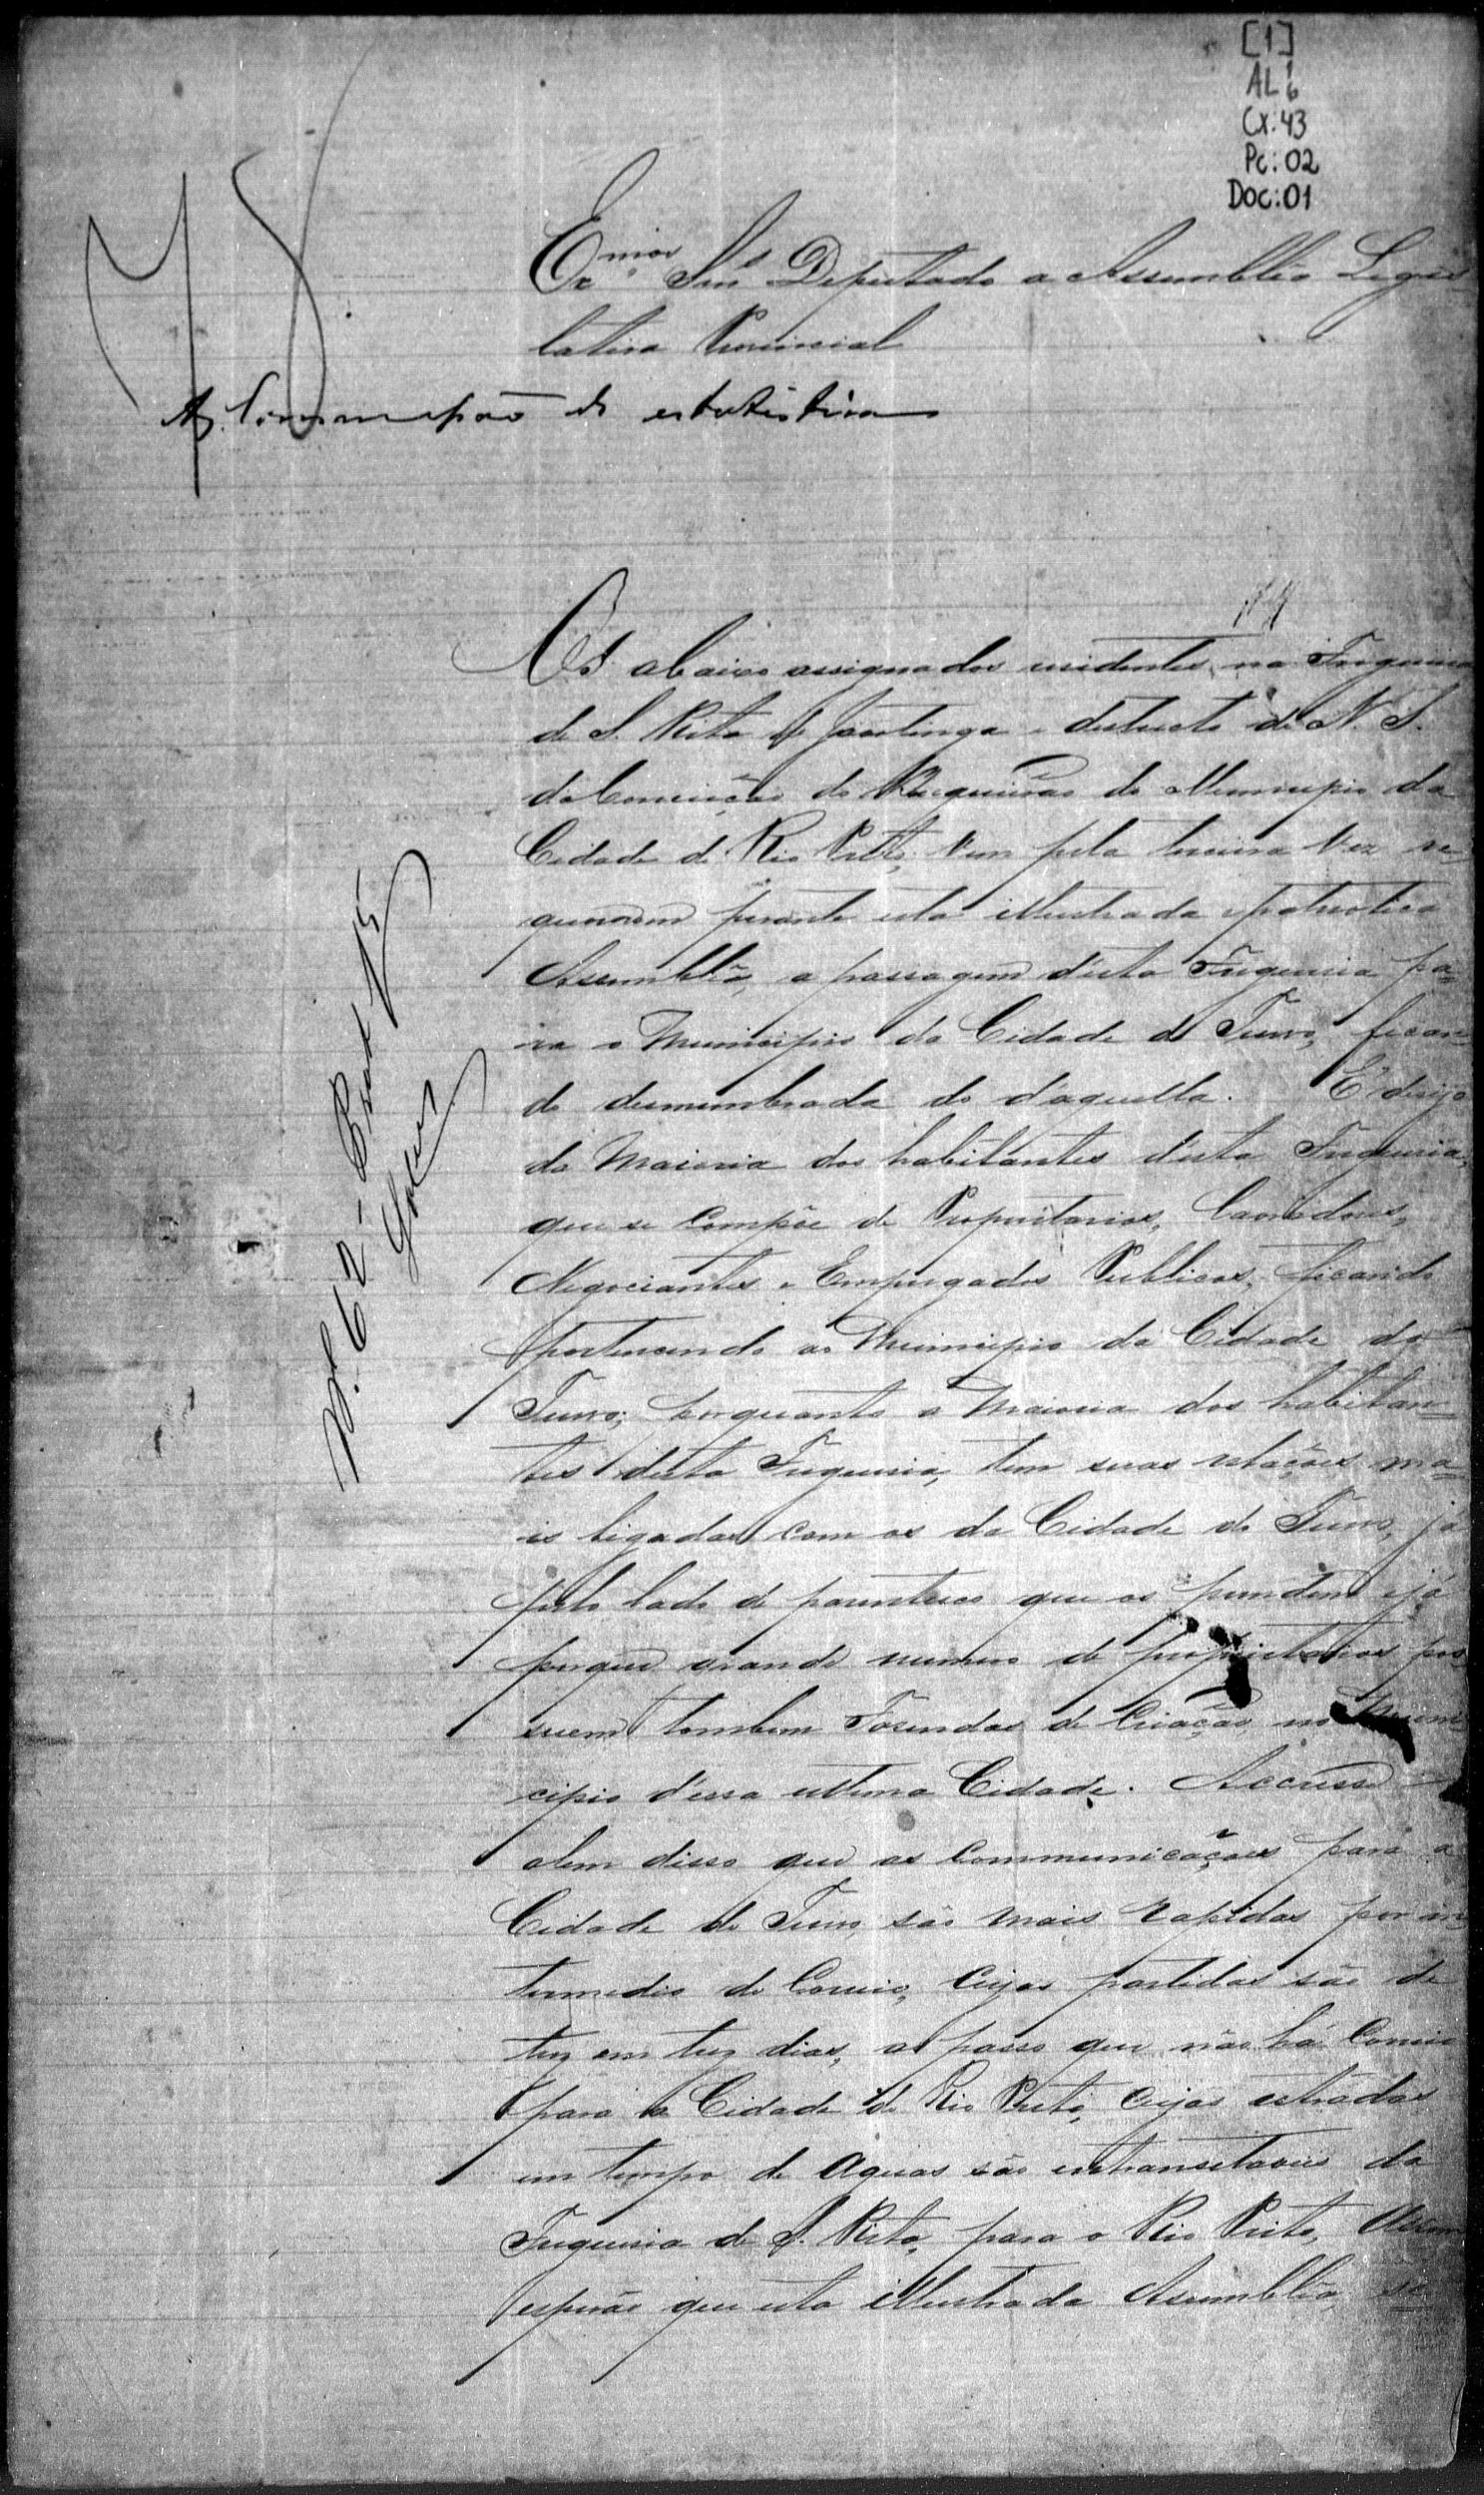 [1]
AL 1/6
Cx: 43
Pc: 02
Doc: 01
Exmos Snrs Deputado a Assemblea Legis
lativa Provincial
Á Commissão de estatistica
Os abaixo assignados residentes na Freguesia
de S. Rita de Jacutinga e districto de N. S.
da Conceição do Boqueirão do Municipio da
Cidade do Rio Preto, vem pela terceira vez re-
quererem perante esta illustrada e patriotica
Assemblea, a passagem d'esta Freguesia pa-
ra o Municipio da Cidade do Turvo, fican-
do desmembrada do d'aquella. E' desejo
da maioria dos habitantes d'esta Freguesia,
que se compõe de Propritarios, Lavradores,
Negociantes e Empregados Publicos, ficando
pertencendo ao Municipio da Cidade do
Turvo; porquanto a maioria dos habitan-
tes desta Freguesia, tem suas relações ma-
is ligadas com os da Cidade do Turvo, já
pelo lado de parentesco que os prendem e já
porque grande numero de proprietarios pos
suem tambem Fasendas de Criação, no Muni
cipio d'essa ultima Cidade. Accresse
alem disso que as communicações para a
Cidade do Turvo, são mais rapidas por in
termedio do Correio, cujas partidas são de
tres em tres dias, ao passo que não há Correio
para a Cidade do Rio Preto, cujas estradas
em tempo de aguas são intransitaveis da
Freguesia de S. Rita, para o Rio Preto, Assim
esperão que esta illustrada Assemblea, se
N.º 62 - Prat 15